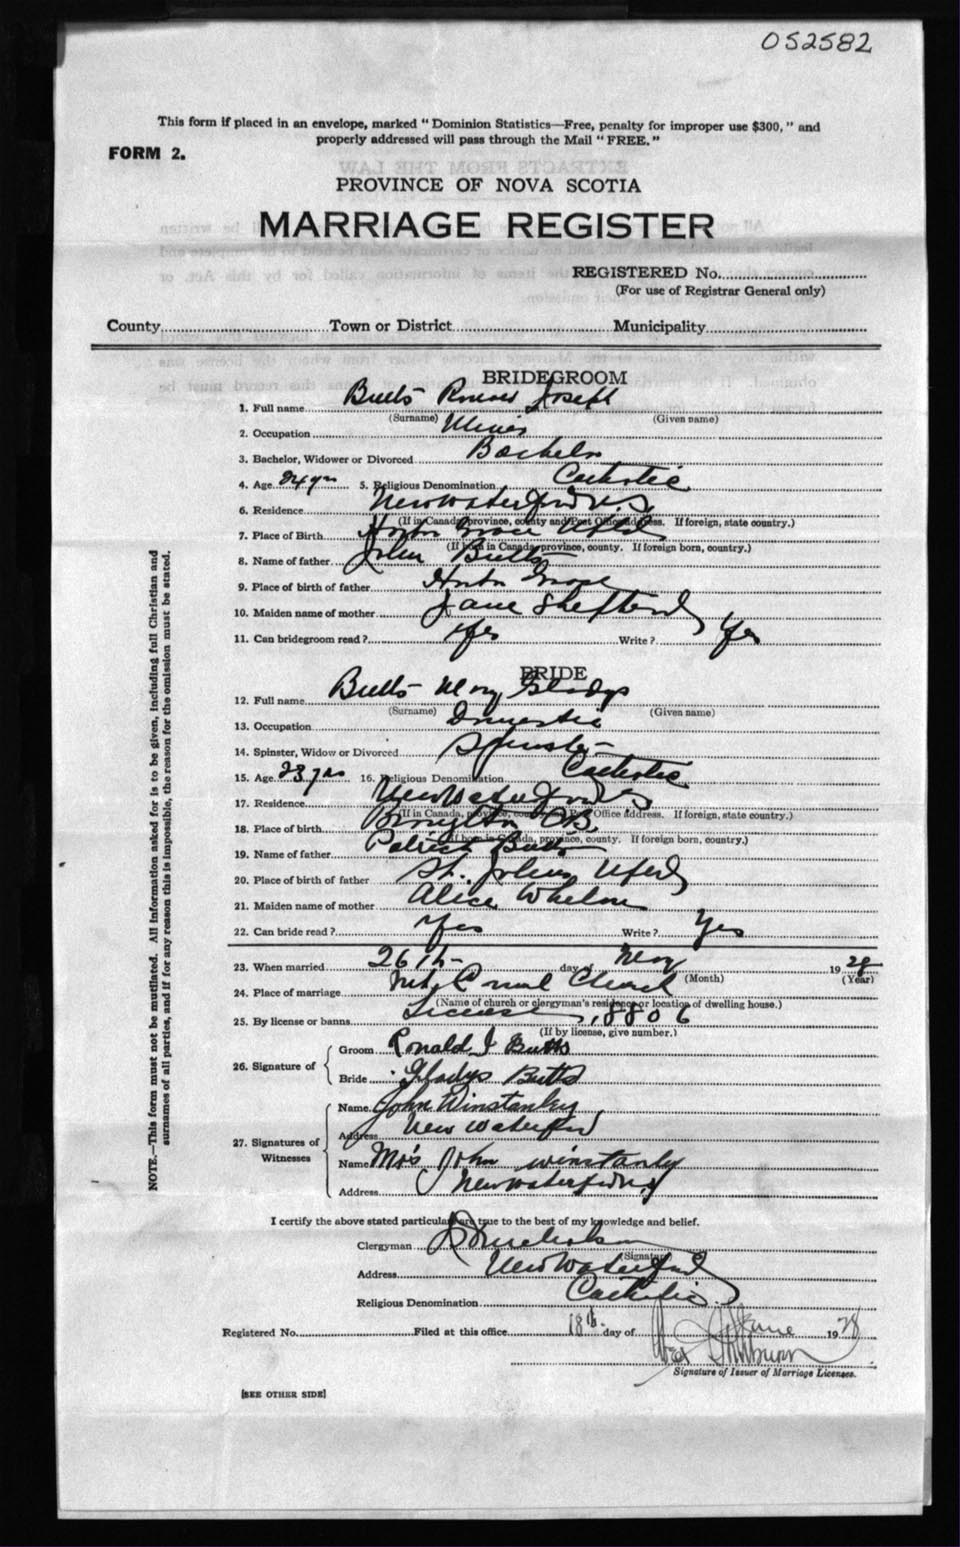 052582
This form if placed in an envelope, marked "Dominion Statistics—Free, penalty for improper use $300," and
properly addressed will pass through the Mail "FREE."
FORM 2.
PROVINCE OF NOVA SCOTIA
MARRIAGE REGISTER
REGISTERED No.
(For use of Registrar General only)
County Town or District Municipality
BRIDEGROOM
1. Full name Butts Joseph
(Surname) (Given name)
2. Occupation Miner
3. Bachelor, Widower or Divorced Bachelor
4. Age 24 yrs 5. Religious Denomination Catholic
6. Residence New Waterford N.S.
(If in Canada, province, county and Post Office address. If foreign, state country.)
7. Place of Birth
(If born in Canada, province, county. If foreign born, country.)
8. Name of father John Butts
9. Place of birth of father
10. Maiden name of mother Jane
11. Can bridegroom read? Yes Write? Yes
BRIDE
12. Full name Butts Mary Gladys
(Surname) (Given name)
13. Occupation Domestic
14. Spinster, Widow or Divorced Spinster
15. Age 23 yrs 16. Religious Denomination Catholic
17. Residence New Waterford NS
(If in Canada, province, county, Post Office address. If foreign, state country.)
18. Place of birth
(If born in Canada, province, county. If foreign born, country.)
19. Name of father Patrick Butts
20. Place of birth of father St. Johns Nfld
21. Maiden name of mother Alice Whelan
22. Can bride read? Yes Write? Yes
23. When married 26th day of May 1928
(Month) (Year)
24. Place of marriage Mt. Carmel Church
(Name of church or clergyman's residence or location of dwelling house.)
25. By license or banns License, 18806
(If by license, give number.)
26. Signature of
Groom Ronald J Butts
Bride Gladys Butts
27. Signatures of Witnesses
Name John Winstanley
Address New Waterford
Name Mrs John Winstanly
Address New Waterford
I certify the above stated particulars are true to the best of my knowledge and belief.
Clergyman
(Signature)
Address New Waterford
Religious Denomination Catholic
Registered No. Filed at this office 18th day of June 1928
Signature of Issuer of Marriage Licenses.
[SEE OTHER SIDE]
NOTE.—This form must not be mutilated. All information asked for is to be given, including full Christian and
surnames of all parties, and if for any reason this is impossible, the reason for the omission must be stated.